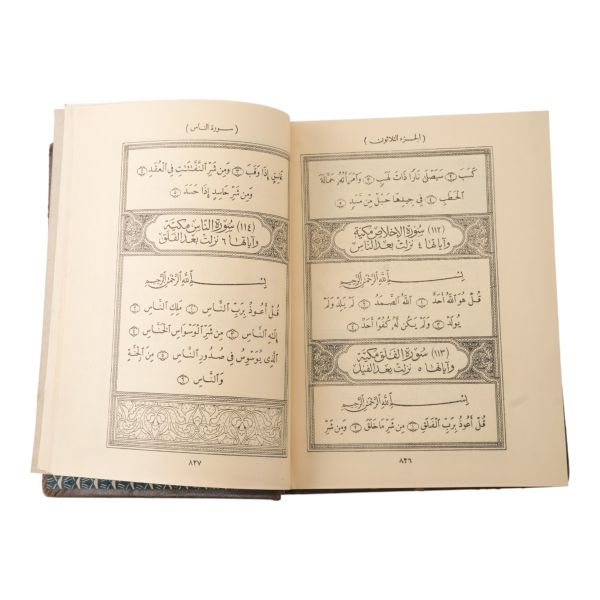 (الجزء الثلاثون)
كَسَبَ ٢ سَيَصْلَىٰ نَارًا ذَاتَ لَهَبٍ ٣ وَٱمْرَأَتُهُۥ حَمَّالَةَ
ٱلْحَطَبِ ٤ فِى جِيدِهَا حَبْلٌ مِّن مَّسَدٍ ٥
(١١٢) سورة الإخلاص مكية
وآياتها ٤ نزلت بعد الناس
بِسْمِ ٱللَّهِ ٱلرَّحْمَٰنِ ٱلرَّحِيمِ
قُلْ هُوَ ٱللَّهُ أَحَدٌ ١ ٱللَّهُ ٱلصَّمَدُ ٢ لَمْ يَلِدْ وَلَمْ
يُولَدْ ٣ وَلَمْ يَكُن لَّهُۥ كُفُوًا أَحَدٌ ٤
(١١٣) سورة الفلق مكية
وآياتها ٥ نزلت بعد الفيل
بِسْمِ ٱللَّهِ ٱلرَّحْمَٰنِ ٱلرَّحِيمِ
قُلْ أَعُوذُ بِرَبِّ ٱلْفَلَقِ ١ مِن شَرِّ مَا خَلَقَ ٢ وَمِن شَرِّ
٨٢٦
(سورة الناس)
غَاسِقٍ إِذَا وَقَبَ ٣ وَمِن شَرِّ ٱلنَّفَّٰثَٰتِ فِى ٱلْعُقَدِ ٤
وَمِن شَرِّ حَاسِدٍ إِذَا حَسَدَ ٥
(١١٤) سورة الناس مكية
وآياتها ٦ نزلت بعد الفلق
بِسْمِ ٱللَّهِ ٱلرَّحْمَٰنِ ٱلرَّحِيمِ
قُلْ أَعُوذُ بِرَبِّ ٱلنَّاسِ ١ مَلِكِ ٱلنَّاسِ ٢
إِلَٰهِ ٱلنَّاسِ ٣ مِن شَرِّ ٱلْوَسْوَاسِ ٱلْخَنَّاسِ ٤
ٱلَّذِى يُوَسْوِسُ فِى صُدُورِ ٱلنَّاسِ ٥ مِنَ ٱلْجِنَّةِ
وَٱلنَّاسِ ٦
٨٢٧